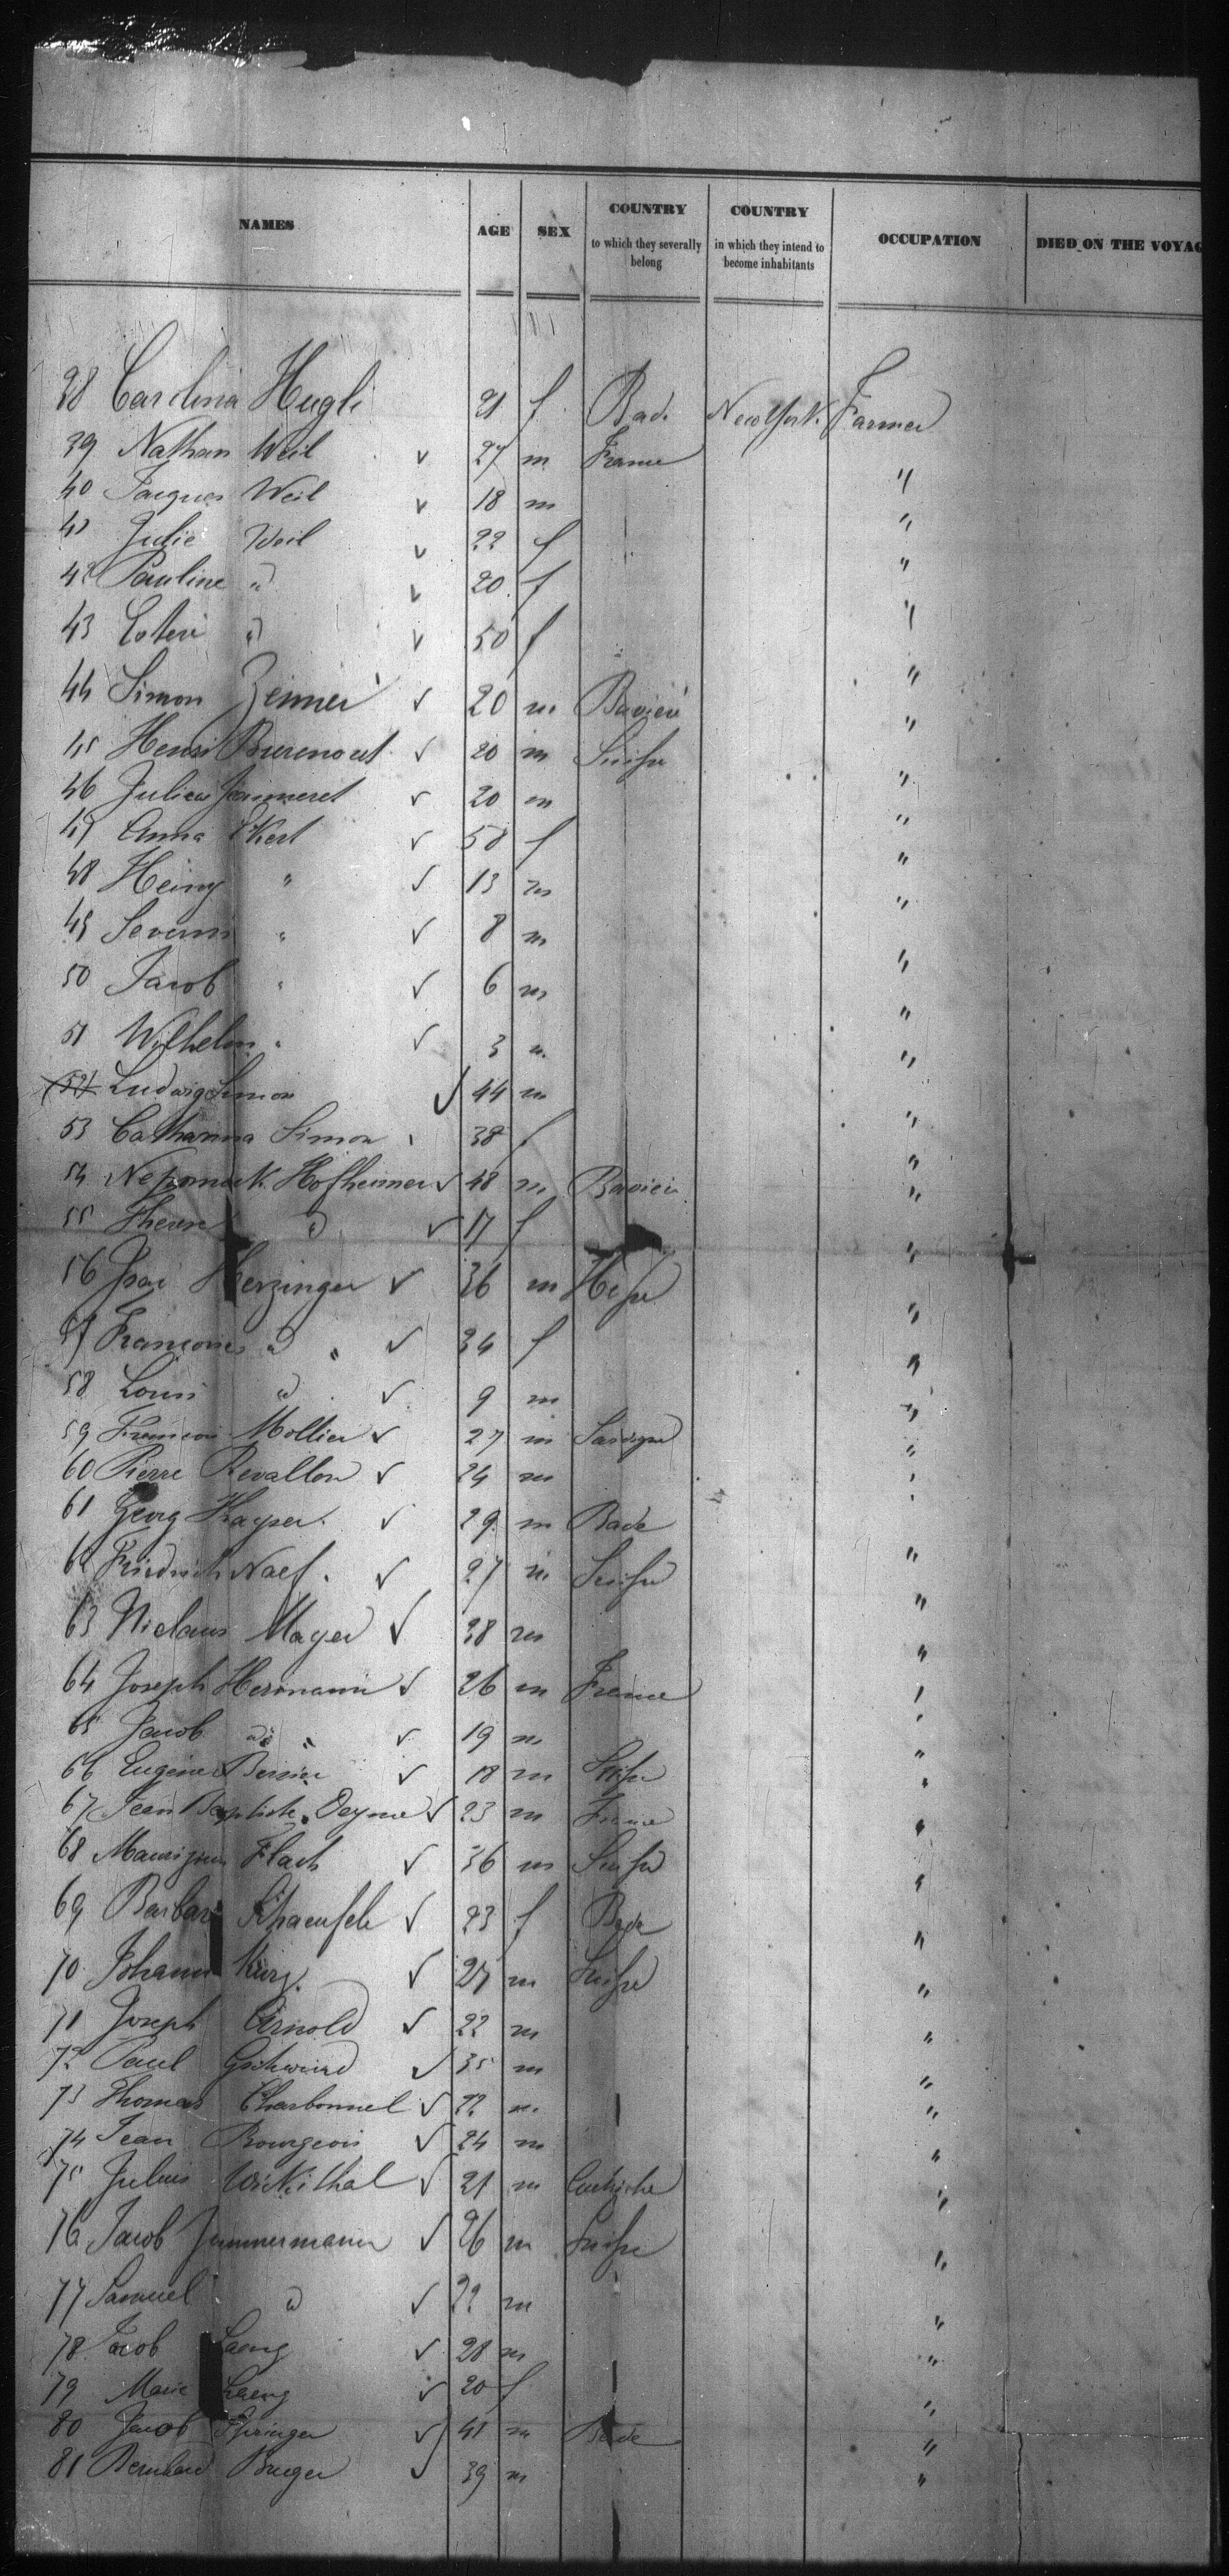 NAMES AGE SEX COUNTRY to which they severally belong COUNTRY in which they intend to become inhabitants OCCUPATION DIED ON THE VOYAG
38 Carolina Hugli 21 f Bade New York Farmer
39 Nathan Weil 27 m France "
40 Jacques Weil 18 m "
41 Julie Weil 22 f "
42 Pauline " 20 f "
43 " 50 f "
44 Simon 20 m "
45 Henri 20 m Suisse "
46 Jeanneret 20 m "
47 Anna Ekert 50 f "
48 " 13 m "
49 Severin " 8 m "
50 Jacob " 6 m "
51 Wilhelm " 3 m "
52 Ludwig Simon 44 m "
53 Catharina Simon 38 f "
54 Hofheimer 48 m "
55 Therese " 17 f "
56 Herzinger 36 m Hesse "
57 " 34 f "
58 Louis " 9 m "
59 Mollier 27 m "
60 Pierre Revallon 24 m "
61 Georg Kayser 29 m Bade "
62 Friedrich Naef 27 m Suisse "
63 Niclaus Mayer 38 m "
64 Joseph Hermann 26 m France "
65 Jacob " 19 m "
66 Eugène 18 m Suisse "
67 Jean Baptiste 23 m France "
68 Flach 36 m Suisse "
69 Barbara Schaeufele 23 f Bade "
70 Johann 27 m Suisse "
71 Joseph Arnold 22 m "
72 Paul Gschwind 35 m "
73 Thomas Charbonnel 22 m "
74 Jean Bourgeois 24 m "
75 Julius 21 m "
76 Jacob Zimmermann 26 m Suisse "
77 Samuel " 22 m "
78 Jacob Laeng 28 m "
79 Marie Laeng 20 f "
80 Jacob Springer 41 m Bade "
81 Bernhard 39 m "